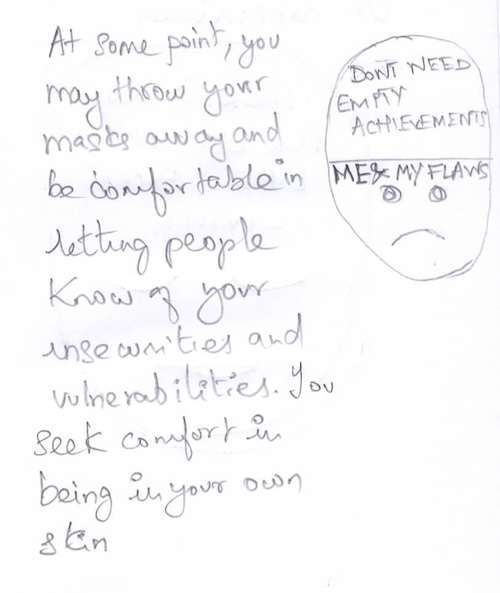 At some point, you
may throw your
masks away and
be comfortable in
letting people
know of your
insecurities and
vulnerabilities. You
seek comfort in
being in your own
skin
DON'T NEED
EMPTY
ACHIEVEMENTS
ME & MY FLAWS